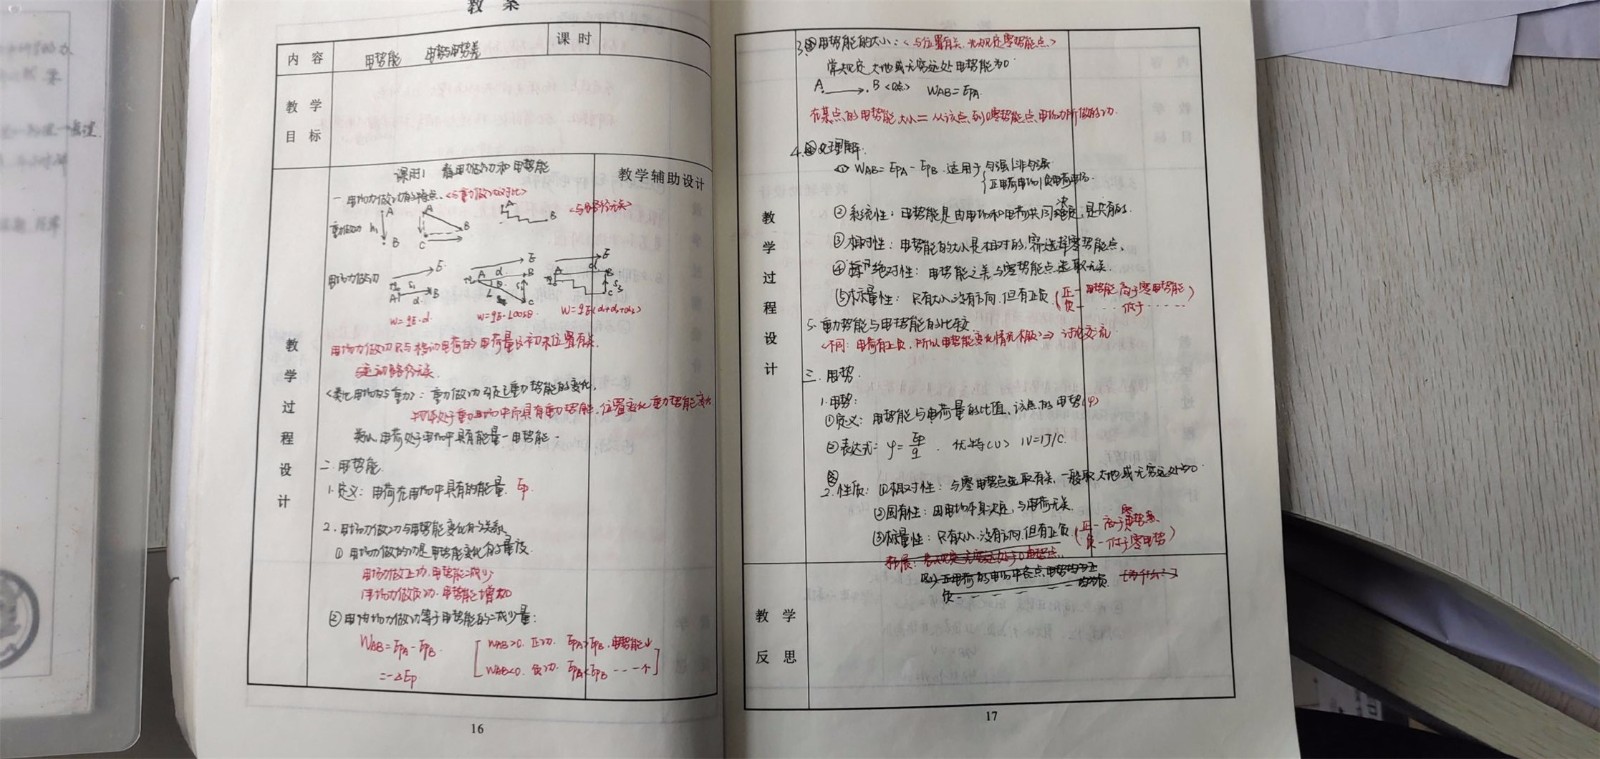 教 案
内 容
电势能 电势 电势差
课 时
教 学
目 标
课时1 静电力做功和电势能
教学辅助设计
教 学 过 程 设 计
一 电场力做功的特点 <与重力做功对比>
重力做功
A
h
B
A
B
C
A
B
<与路径无关>
电场力做功
W=qE·d
W=qE·Lcosθ
电场力做功只与移动电荷的电荷量及初末位置有关.
与运动路径无关.
<类比电场力与重力>: 重力做功引起重力势能的变化.
物体处于重力场中所具有重力势能, 位置变化重力势能变化
类似 电荷处于电场中具有能量—电势能.
二. 电势能
1. 定义: 电荷在电场中具有的能量. Ep
2. 电场力做功与电势能变化的关系
① 电场力做的功是电势能变化的量度.
电场力做正功. 电势能减少
电场力做负功. 电势能增加
② 电场力做功等于电势能的减少量:
WAB=EpA-EpB
=-ΔEp
WAB>0. 正功. EpA>EpB. 电势能↓
WAB<0. 负功. EpA<EpB ----↑
16
3. 电势能的大小: <与位置有关. 先规定零势能点>
常规定大地或无穷远处电势能为0
A → B <0点> WAB=EpA
在某点的电势能大小=从该点到零势能点电场力所做的功.
教 学 过 程 设 计
4. 理解:
① WAB=EpA-EpB 适用于 匀强/非匀强
正电荷电场/负电荷电场.
② 系统性: 电势能是由电场和电荷共同决定, 是共有的.
③ 相对性: 电势能的大小是相对的, 需选择零势能点.
④ 绝对性: 电势能之差与零势能点选取无关.
⑤ 标量性: 只有大小没有方向, 但有正负 (正—电势能高于零电势能
负---- 低于-----)
5. 重力势能与电势能的比较
<不同: 电荷有正负, 所以电势能变化情况> ⇒ 讨论交流
三. 电势.
1. 电势:
①定义: 电势能与电荷量的比值, 该点的电势(φ)
②表达式: φ=Ep/q. 伏特(V) 1V=1J/C.
2. 性质: ①相对性: 与零电势点选取有关. 一般取大地或无穷远处为0
②固有性: 由电场本身决定, 与电荷无关.
③标量性: 只有大小, 没有方向, 但有正负 (正—高于零电势
负—低于零电势)
教 学
反 思
17